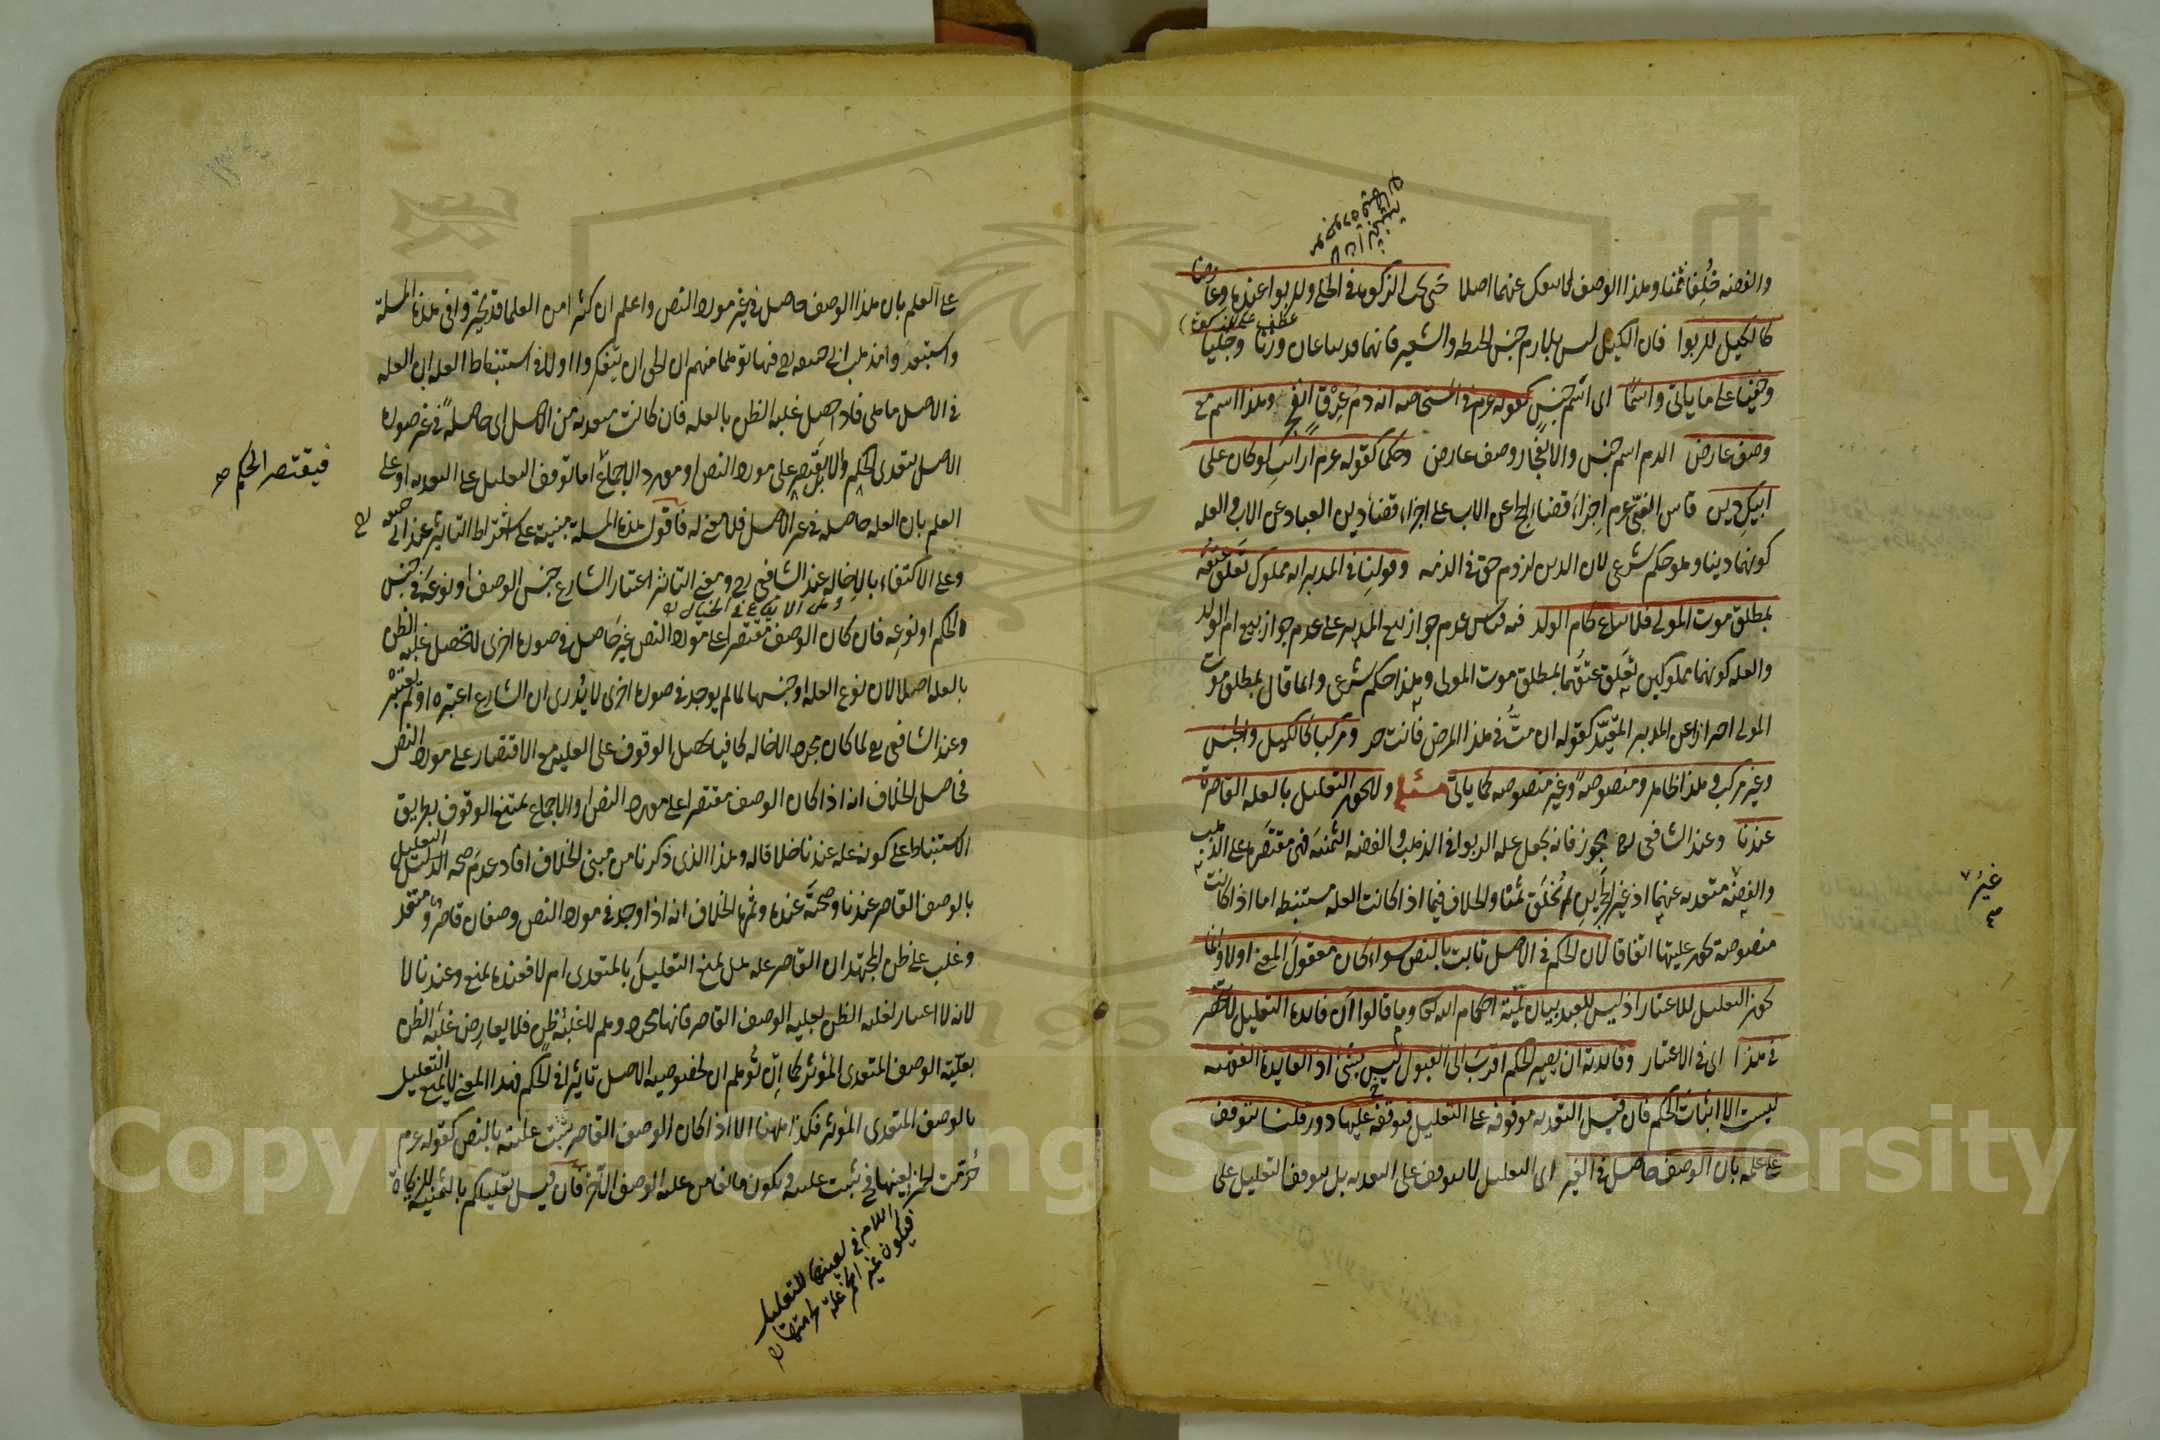 لان الثمنية
موجودة فيها
والفضة خلقا ثمنا وهذا الوصف لا ينفك عنهما اصلا حتى تجب الزكوة في الحلى وللربوا عنده وعارضا
كالكيل للربوا فان الكيل ليس بلازم حبس الحنطة والشعير فانهما قد يباعان وزنا وجليا
عطف على
وخفيا على ما ياتى واسما اى اسم جنس كقوله عم في المستحاضة انه دم عرق انفجر وهذا اسم مع
وصف عارض الدم اسم جنس والانفجار وصف عارض وحكما كقوله عم ارايت لو كان على
ابيك دين قاس النبى عم اجزاء قضاء الحج عن الاب على اجزاء قضاء دين العباد عن الاب والعلة
كونهما دينا وهو حكم شرعى لان الدين لزوم حق في الذمة وقولنا في المدبر انه مملوك تعلق عتقه
بمطلق موت المولى فلا يباع كام الولد فيه قياس عدم جواز بيع المدبر على عدم جواز بيع ام الولد
والعلة كونهما مملوكين تعلق عتقهما بمطلق موت المولى وهذا حكم شرعى وانما قال بمطلق موت
المولى احترازا عن المدبر المقيد كقوله ان مت في هذا المرض فانت حر ومركبا كالكيل والجنس
وغير مركب وهذا ظاهر ومنصوصة وغير منصوصة كما ياتى مسئلة ولا يجوز التعليل بالعلة القاصرة
عندنا وعند الشافعى رح يجوز فانه جعل علة الربوا في الذهب والفضة الثمنية فهى مقتصرة على الذهب
والفضة متعدية عنهما اذ غير الحجرين لم يخلق ثمنا والخلاف فيما اذا كانت العلة مستنبطة اما اذا كانت
غير
منصوصة يجوز عليتها اتفاقا لان الحكم في الاصل ثابت بالنص سواء كان معقول المعنى اولا وانما
يجوز التعليل للاعتبار اذ ليس للعبد بيان لمية احكام الله تعالى وما قالوا ان فائدة التعليل لا تنحصر
في هذا اى في الاعتبار وفائدته ان يصير الحكم اقرب الى القبول ليس بشئ اذ الفائدة الفقهية
ليست الا اثبات الحكم فان قيل التعدية موقوفة على التعليل فتوقفه عليها دور قلنا يتوقف
على علمه بان الوصف حاصل في الغير اى التعليل لا يتوقف على التعدية بل يتوقف التعليل على
على العلم بان هذا الوصف حاصل في غير مورد النص واعلم ان كثيرا من العلماء قد تحيروا في هذه المسئلة
واستبعدوا مذهب ابى حنيفة رح فيها توهما منهم ان الحق ان يتفكروا اولا في استنباط العلة ان العلة
في الاصل ما هى فاذا حصل غلبة الظن بالعلة فان كانت متعدية من الاصل اى حاصلة في غير صورة
الاصل يتعدى الحكم والا بل يقتصر على مورد النص او مورد الاجماع اما توقف التعليل على التعدية او على
فيقتصر الحكم صح
العلم بان العلة حاصلة في غير الاصل فلا معنى له فاقول هذه المسئلة مبنية على اشتراط التاثير عند ابى حنيفة رح
وعلى الاكتفاء بالاخالة عند الشافعى رح ومعنى التاثير اعتبار الشارع جنس الوصف او نوعه في جنس
الحكم او نوعه فان كان الوصف مقتصرا على مورد النص غير حاصل في صورة اخرى لا تحصل غلبة الظن
بالعلة اصلا لان نوع العلة او جنسها لما لم يوجد في صورة اخرى لا يدرى ان الشارع اعتبره او لم يعتبره
وعند الشافعى رح لما كان مجرد الاخالة كافيا يحصل الوقوف على العلية مع الاقتصار على مورد النص
فحاصل الخلاف انه اذا كان الوصف مقتصرا على مورد النص او الاجماع يمتنع الوقوف بطريق
الاستنباط على كونه علة عندنا خلافا له وهذا الذى ذكرنا من مبنى الخلاف افاد عدم صحة التعليل
بالوصف القاصر عندنا وصحته عنده وثمرة الخلاف انه اذا وجد في مورد النص وصفان قاصر ومتعد
وغلب على ظن المجتهد ان القاصر علة هل يمنع التعليل بالمتعدى ام لا فعنده يمنع وعندنا لا
لانه لا اعتبار لغلبة الظن بعلية الوصف القاصر فانها مجرد وهم لا غلبة ظن فلا يعارض غلبة الظن
بعلية الوصف المتعدى المؤثر كما ان توهم ان لخصوصية الاصل تاثيرا في الحكم فهذا المعنى لا يمنع التعليل
بالوصف المتعدى المؤثر فكذا ههنا الا اذا كان الوصف القاصر ثبت عليته بالنص كقوله عم
حرمت الخمر لعينها فح ثبت عليته ويكون مانعا من علية الوصف الآخر فان قيل تعليلكم بالثمنية للزكاة
اللام في لعينها للتعليل
فيكون غير الخمر علة